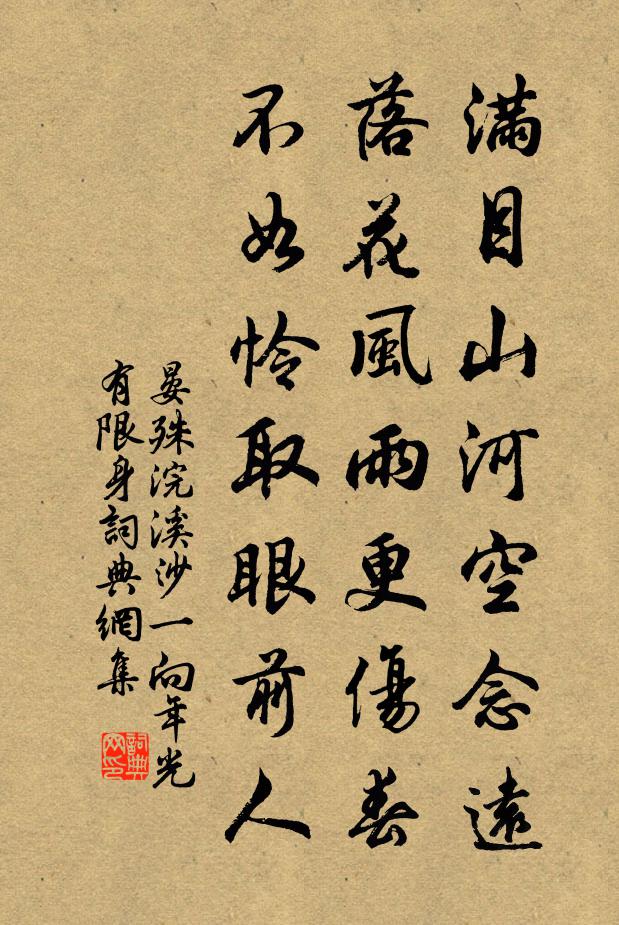 滿目山河空念遠
落花風雨更傷春
不如憐取眼前人
晏殊浣溪沙一向年光
有限身詞典網集
詞典網印